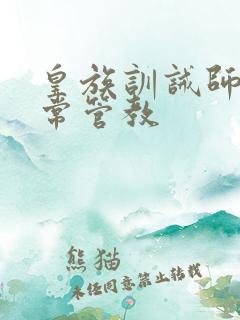 皇族訓誡師
常管教
熊猫
未经同意禁止转载